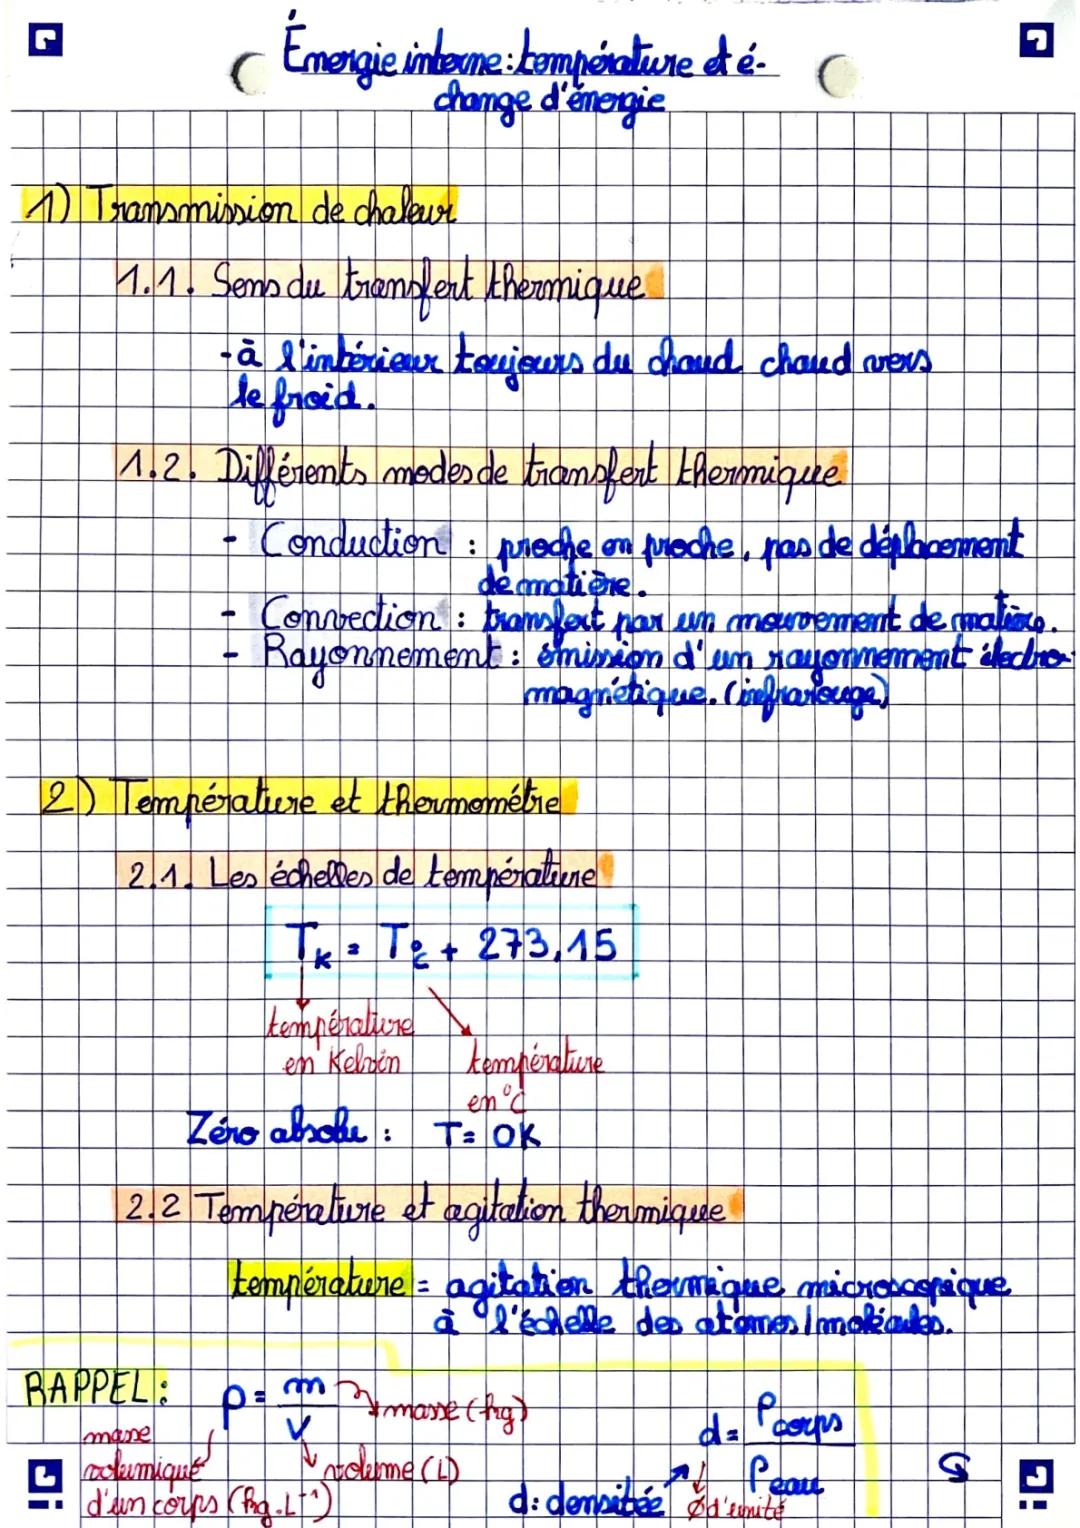 Énergie interne : température et é-
change d'énergie
1) Transmission de chaleur
1.1. Sens du transfert thermique
- à l'intérieur toujours du chaud chaud vers
le froid.
1.2. Différents modes de transfert thermique
- Conduction : proche en proche, pas de déplacement
de matière.
- Convection : transfert par un mouvement de matière.
- Rayonnement : émission d'un rayonnement électro-
magnétique. (infrarouge)
2) Température et thermométrie
2.1. Les échelles de température
T_K = T_°C + 273,15
température
en Kelvin
température
en °C
Zéro absolu : T = 0K
2.2 Température et agitation thermique
température = agitation thermique microscopique
à l'échelle des atomes/molécules.
RAPPEL :
ρ = m/V
masse (kg)
volume (L)
masse
volumique
d'un corps (kg.L⁻¹)
d = ρcorps/ρeau
d : densitée
Ø d'unité